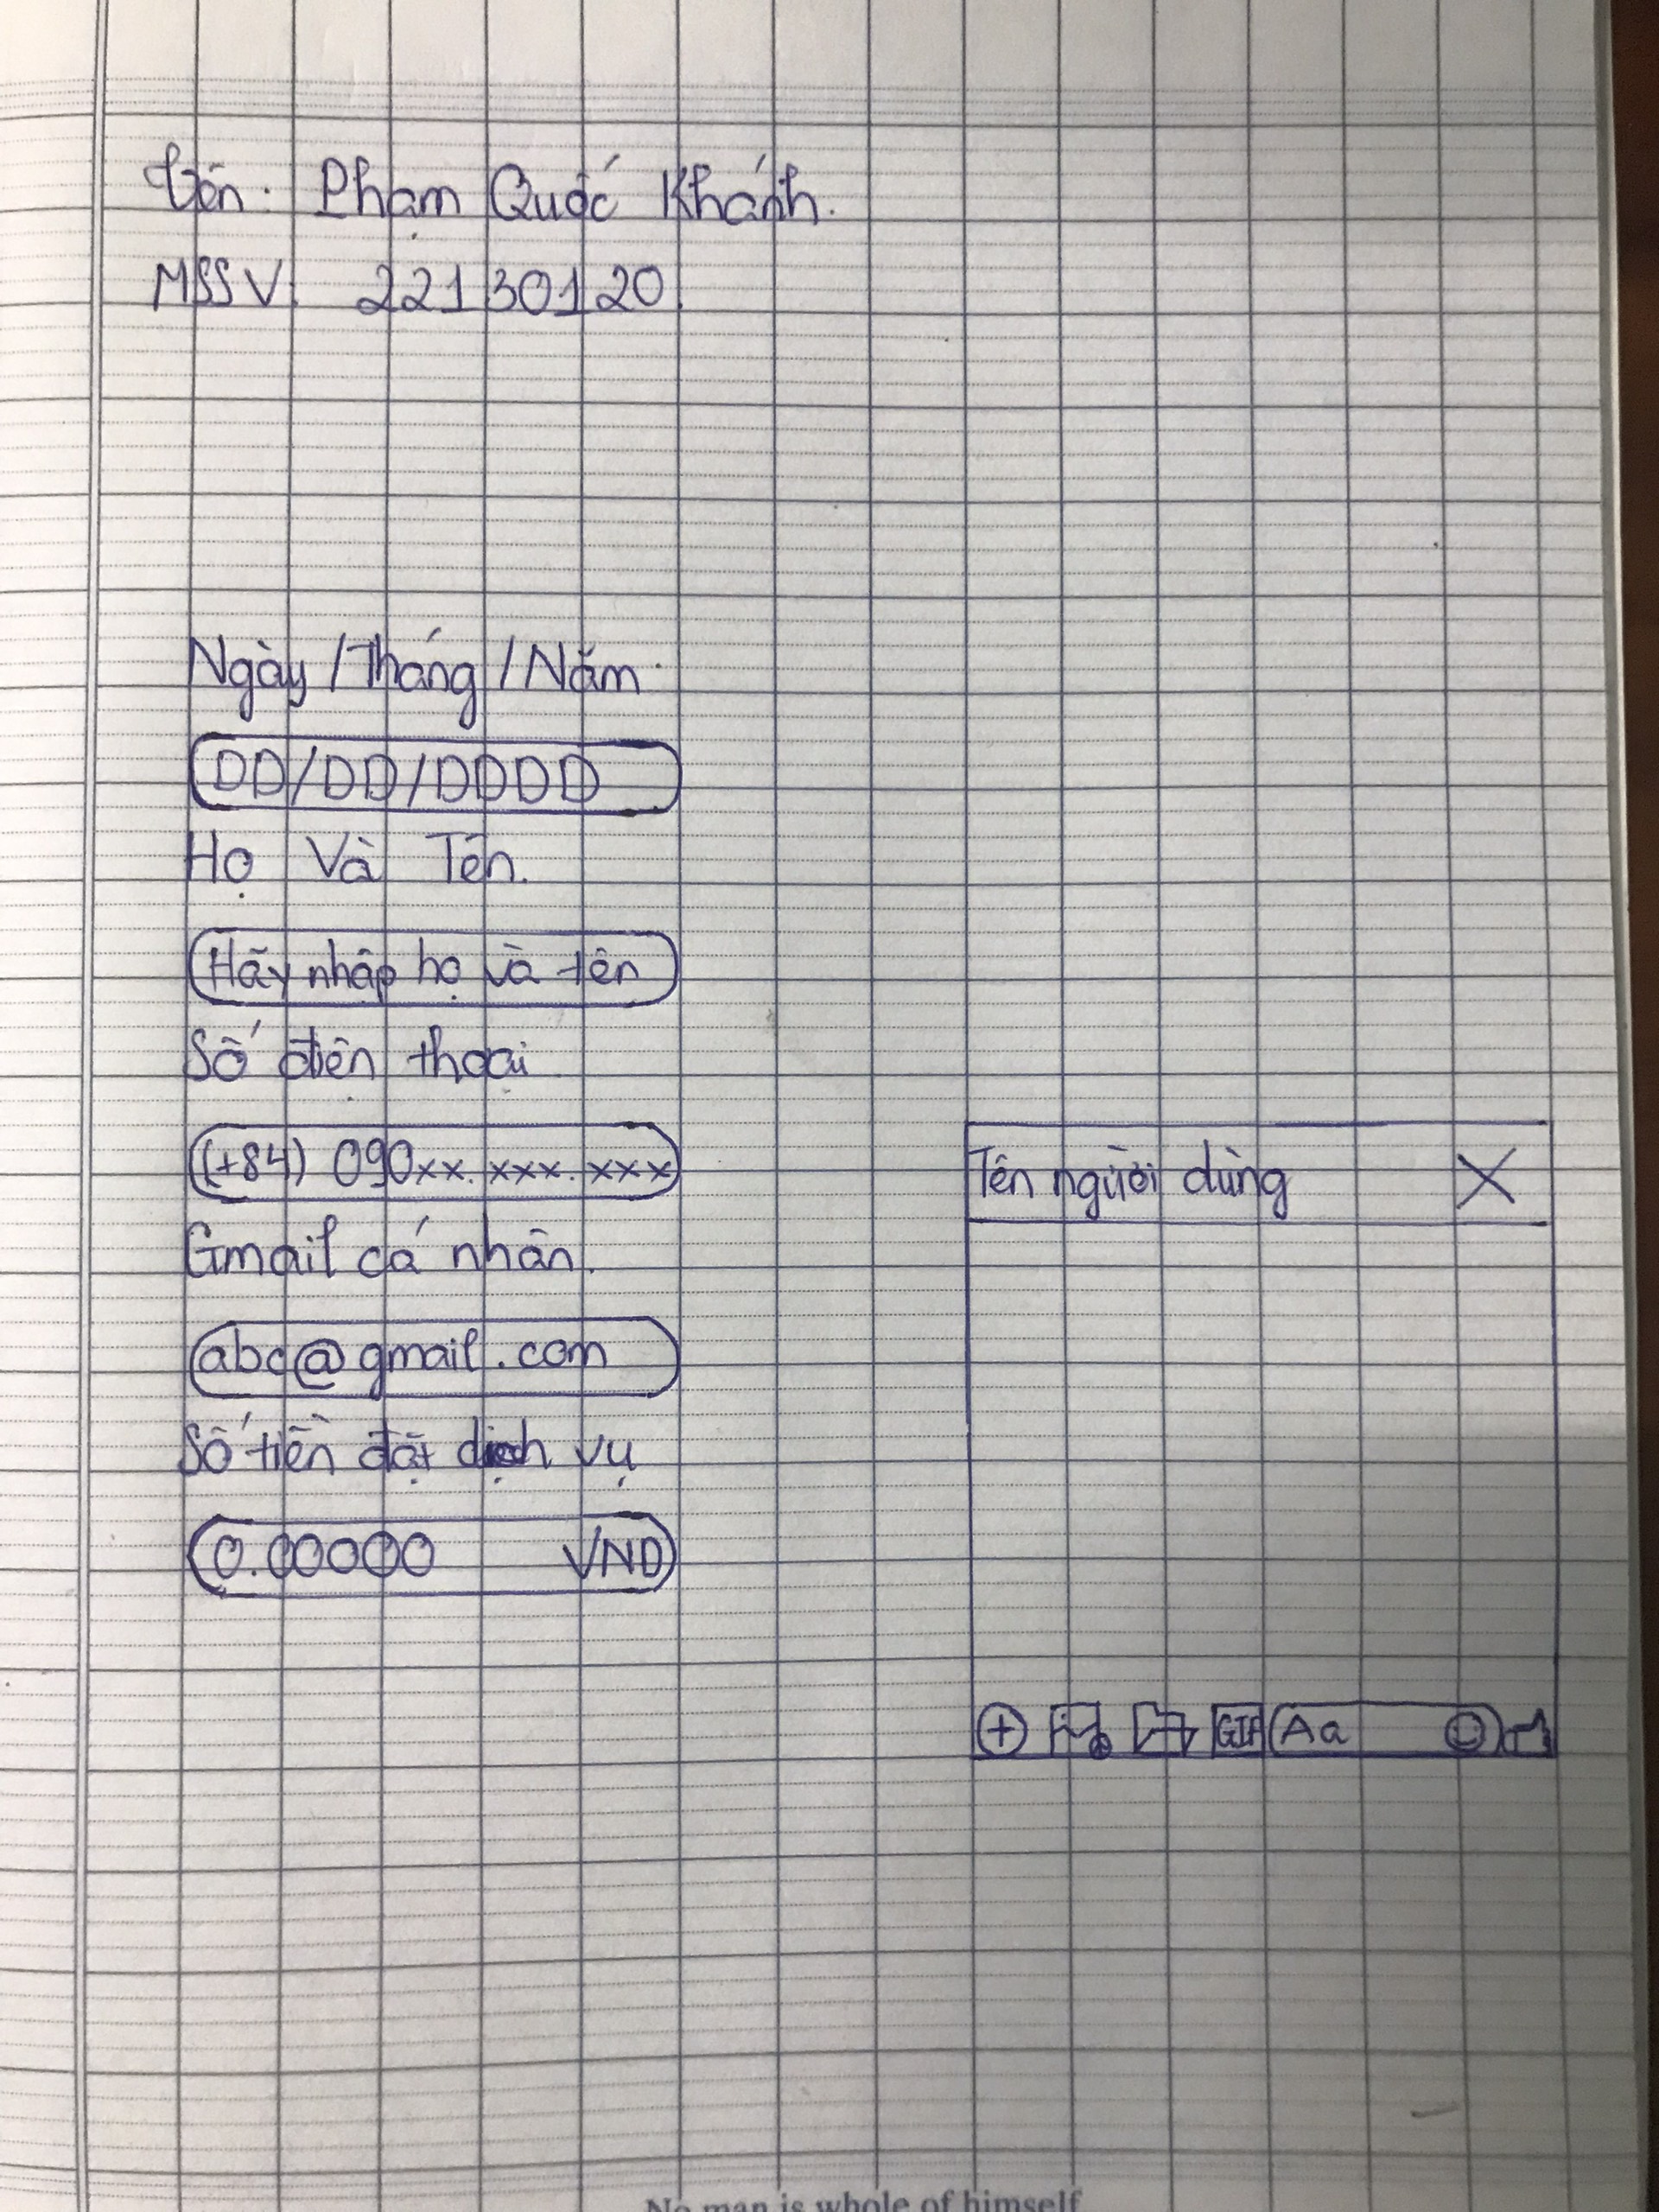 Tên: Phạm Quốc Khánh.
MSSV: 221301120.
Ngày/Tháng/Năm.
DD/DD/DDDD
Họ Và Tên.
Hãy nhập họ và tên
Số điện thoại
(+84) 090xx.xxx.xxx
Gmail cá nhân.
abc@gmail.com
Số tiền đặt dịch vụ
0.00000 VND
Tên người dùng X
GIF Aa
No man is whole of himself